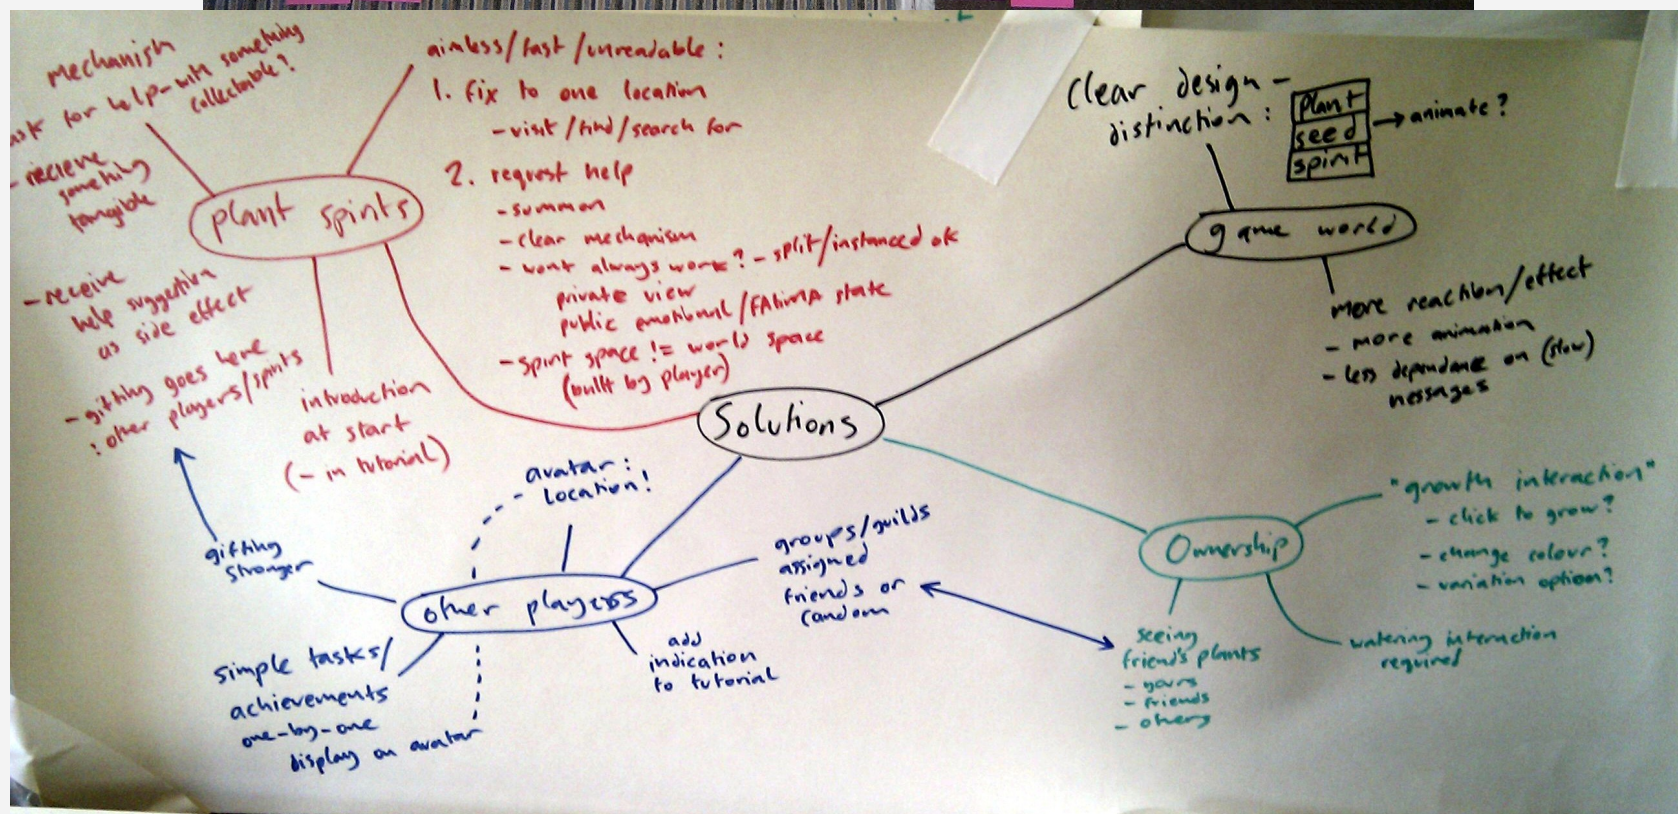 mechanism
ask for help - with something
collectable?
- recieve
something
tangible
plant spirits
- receive
help suggestion
as side effect
- gifting goes here
: other players/spirits
introduction
at start
(- in tutorial)
aimless/fast/unreadable:
1. fix to one location
- visit/find/search for
2. request help
- summon
- clear mechanism
- wont always work? - split/instanced ok
private view
public emotional/FAtiMA state
- spirit space != world space
(built by player)
Solutions
clear design -
distinction:
plant
seed
spirit
animate?
game world
more reaction/effect
- more animation
- less dependance on (slow)
messages
avatar:
- location!
gifting
stronger
other players
groups/guilds
assigned
friends or
random
add
indication
to tutorial
simple tasks/
achievements
one-by-one
display on avatar
Ownership
"growth interaction"
- click to grow?
- change colour?
- variation option?
watering interaction
required
seeing
friend's plants
- yours
- friends
- others